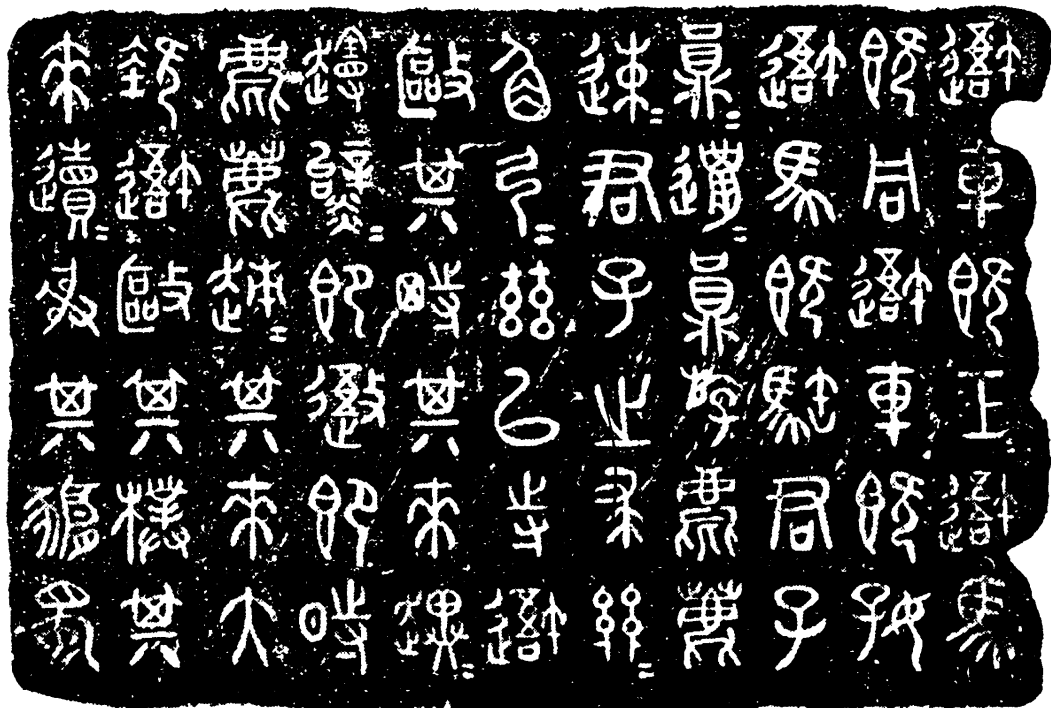 吾車既工吾馬
既同吾車既好
吾馬既君子
員=邋=員斿麀鹿
速=君子之求
角弓=茲以寺吾
敺其特其來趩=
即禦即時
麀鹿趚=其來大
吾敺其樸其
來射其豜蜀